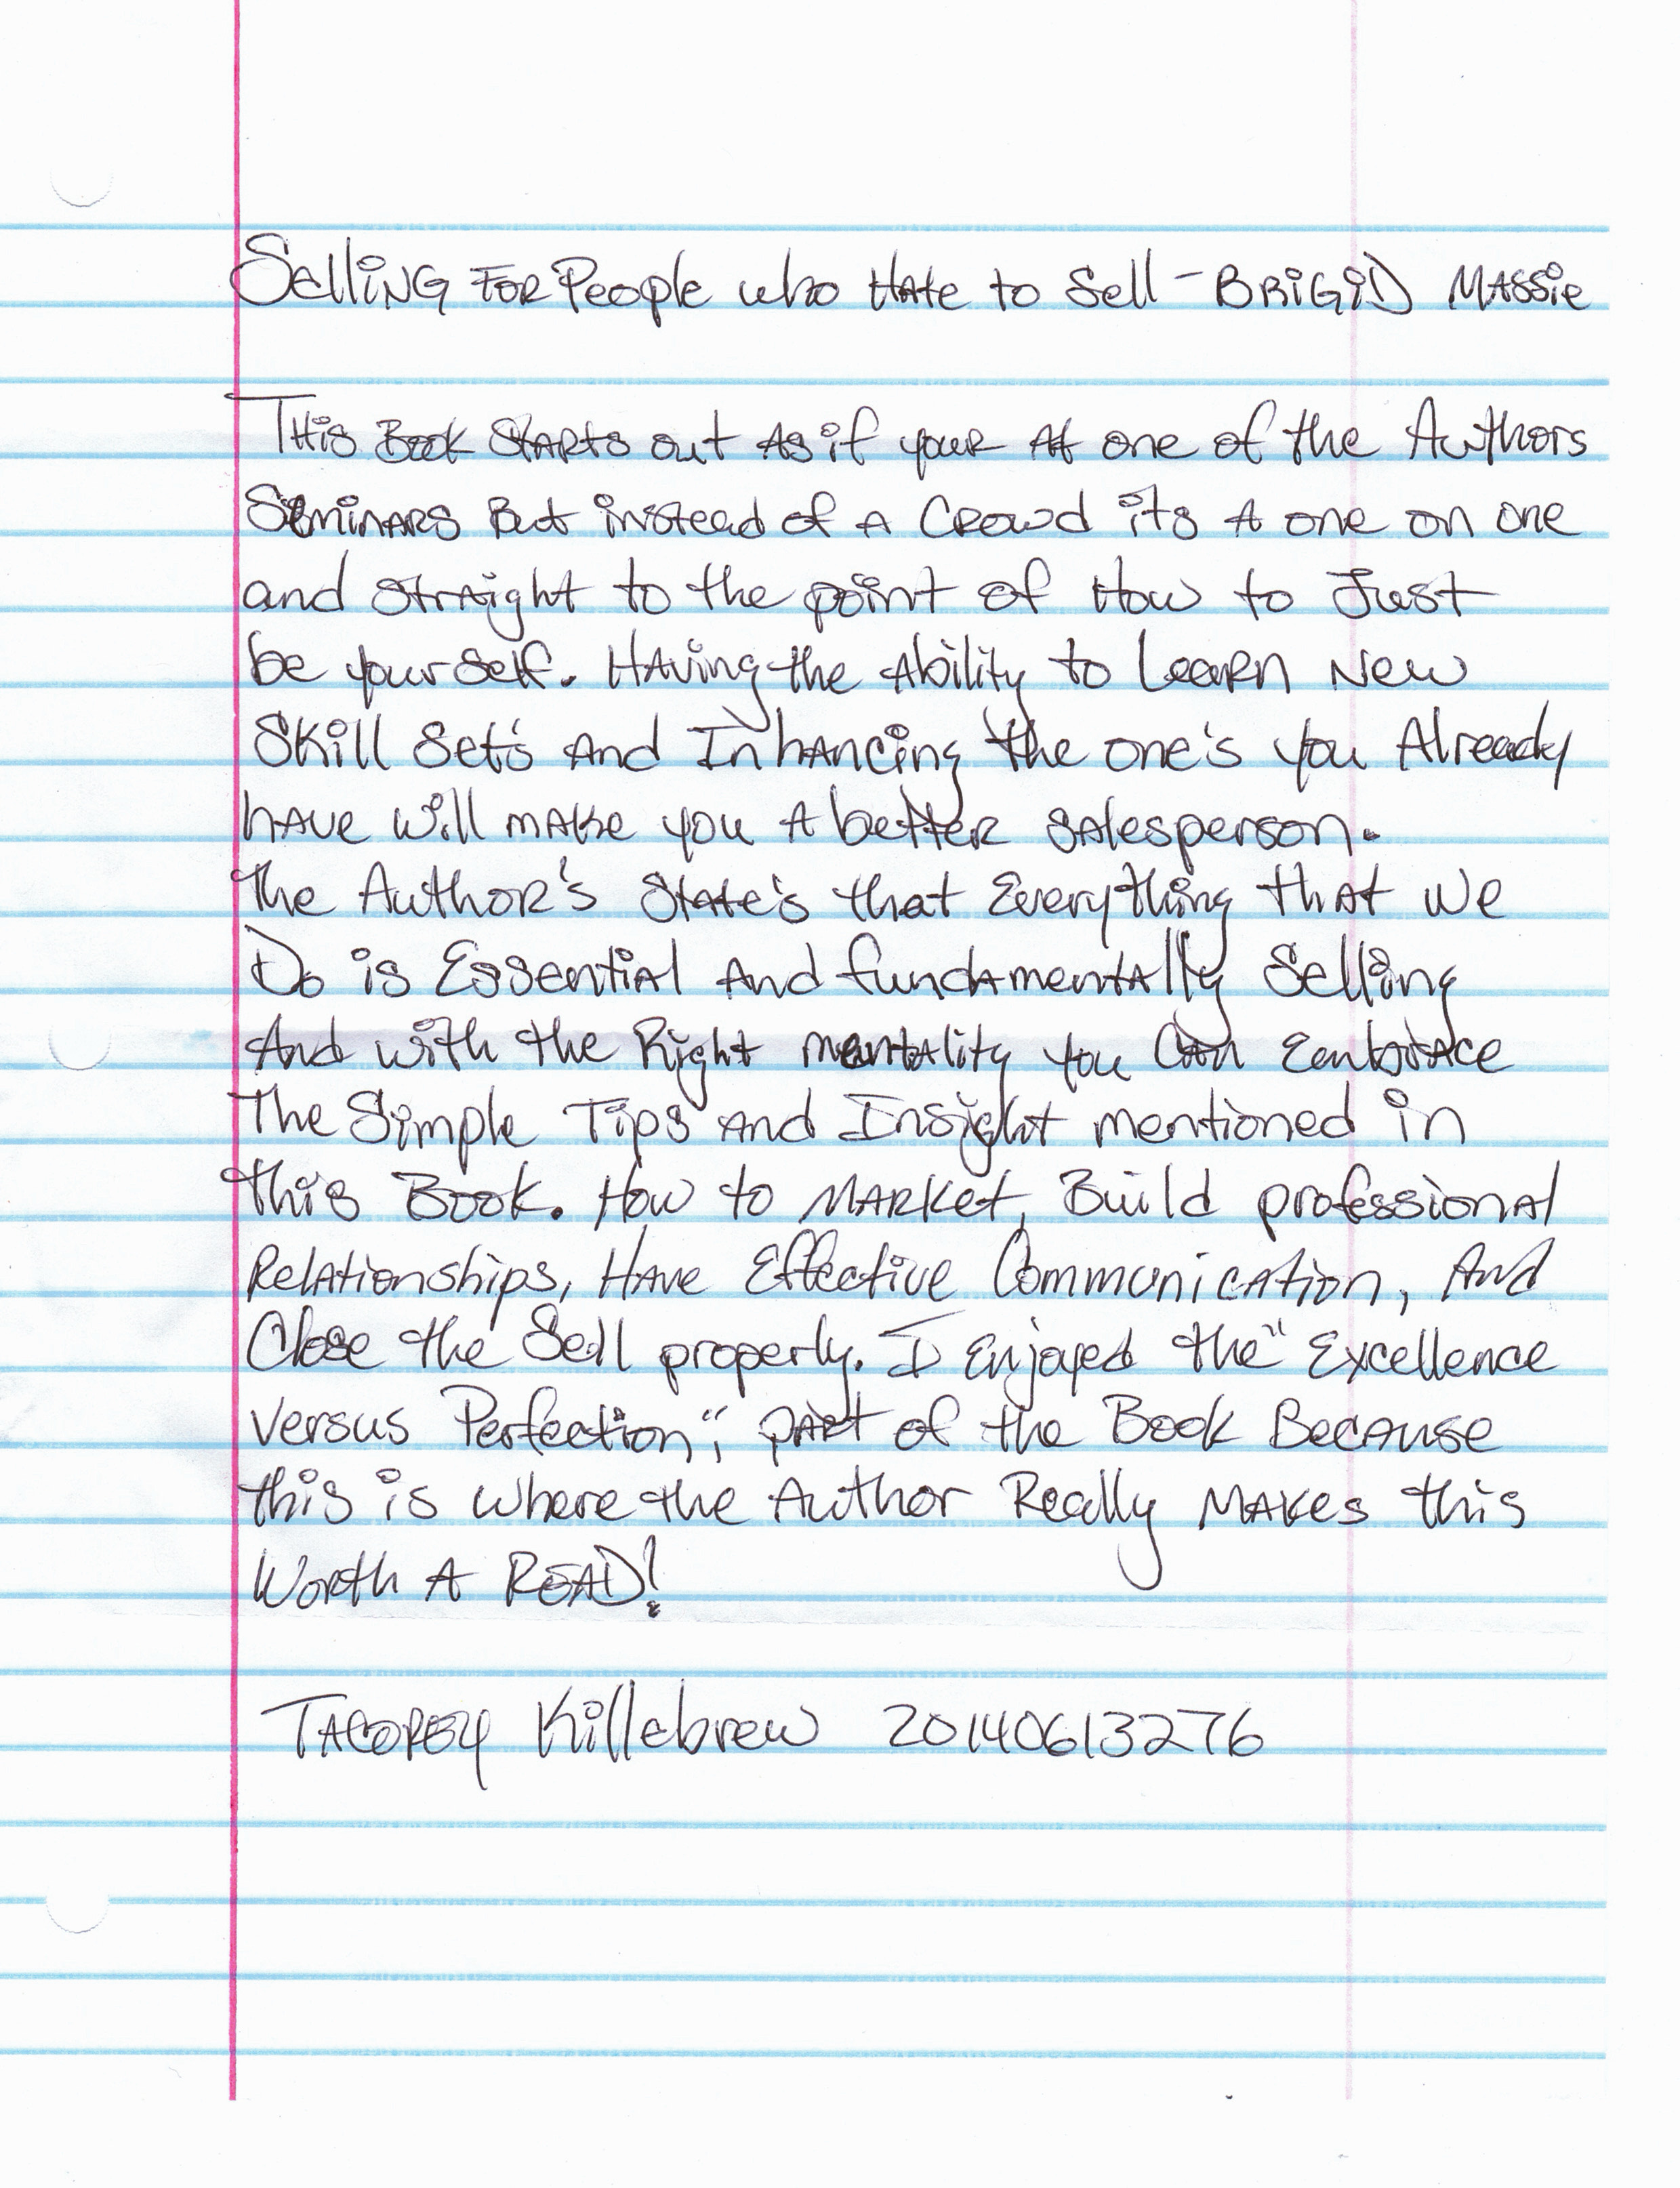 Selling For People who Hate to Sell - Brigid Massie
This Book Starts out As if your At one of the Authors
Seminars But instead of A Crowd its A one on one
and straight to the point of How to Just
be your self. Having the Ability to Learn New
Skill Set's And Inhancing the one's you Already
have will make you A better salesperson.
The Author's State's that Everything that We
Do is Essential And fundamentally Selling
And with the Right mentality you Can Eembrace
The Simple Tips And Insight mentioned in
this Book. How to Market, Build professional
Relationships, Have Effective Communication, And
Close the Sell properly. I Enjoyed the "Excellence
versus Perfection", part of the Book Because
this is where the Author Really Makes this
Worth A READ!
Tacorey Killebrew 20140613276